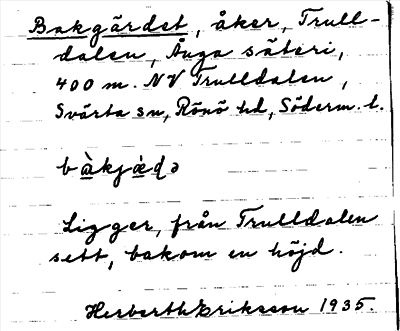 Bakgärdet, åker, Trull-
dalen, Ånga säteri,
400 m. NV Trulldalen,
Svärta sn, Rönö hd, Söderm. l.
bàkjæ̀ḍə
Ligger, från Trulldalen
sett, bakom en höjd.
Herberth Eriksson 1935.